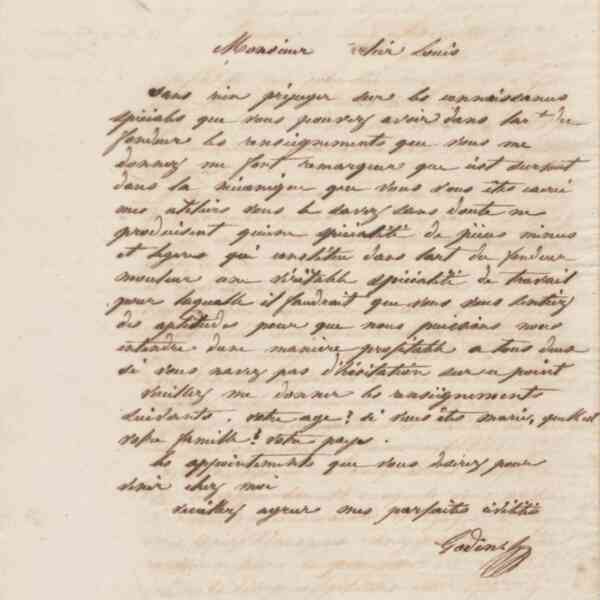 Monsieur cher Louis
Sans rien préjuger sur les connaissances
spéciales que vous pouvez avoir dans lart du
fondeur les renseignements que vous me
donnez me font remarquer que cest surtout
dans la mécanique que vous vous êtes
mes ateliers vous le savez sans doute ne
produisent quune spécialité de pièces minces
et légères qui constitue dans lart du fondeur
mouleur une véritable spécialité de travail
pour laquelle il faudrait que vous vous sentiez
des aptitudes pour que nous puissions nous
entendre dune manière profitable a tous deux
si vous navez pas d'hésitation sur ce point
veuillez me donner les renseignements
suivants. votre age? si vous êtes marié, quelle est
votre famille? votre pays.
les appointements que vous désirez pour
venir chez moi
veuillez agréer mes parfaites civilités
Godin